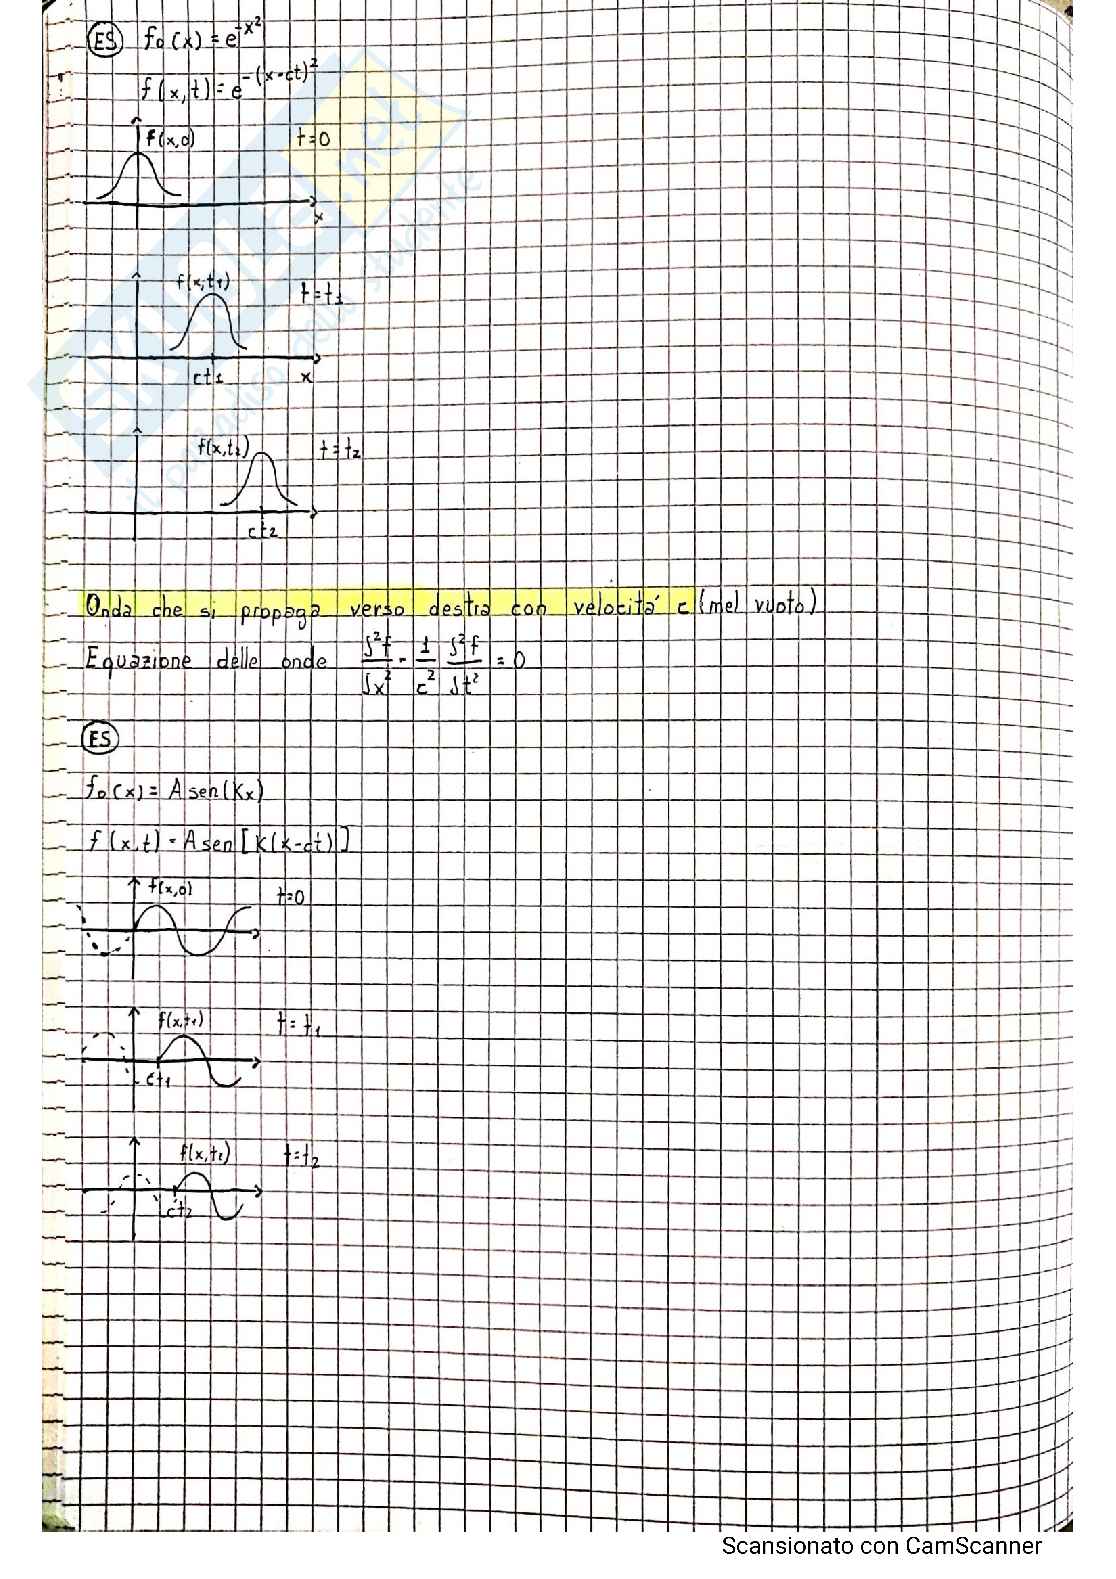 ES f₀(x) = e^-x²
f(x,t) = e^-(x-ct)²
f(x,0) t=0
x
f(x,t₁) t=t₁
ct₁ x
f(x,t₂) t=t₂
ct₂
Onda che si propaga verso destra con velocitá c (nel vuoto)
Equazione delle onde ∂²f/∂x² - 1/c² ∂²f/∂t² = 0
ES
f₀(x) = A sen(Kx)
f(x,t) = A sen[K(x-ct)]
f(x,0) t=0
f(x,t₁) t=t₁
ct₁
f(x,t₂) t=t₂
ct₂
SKUOLA.net
il paradiso dello studente
Scansionato con CamScanner